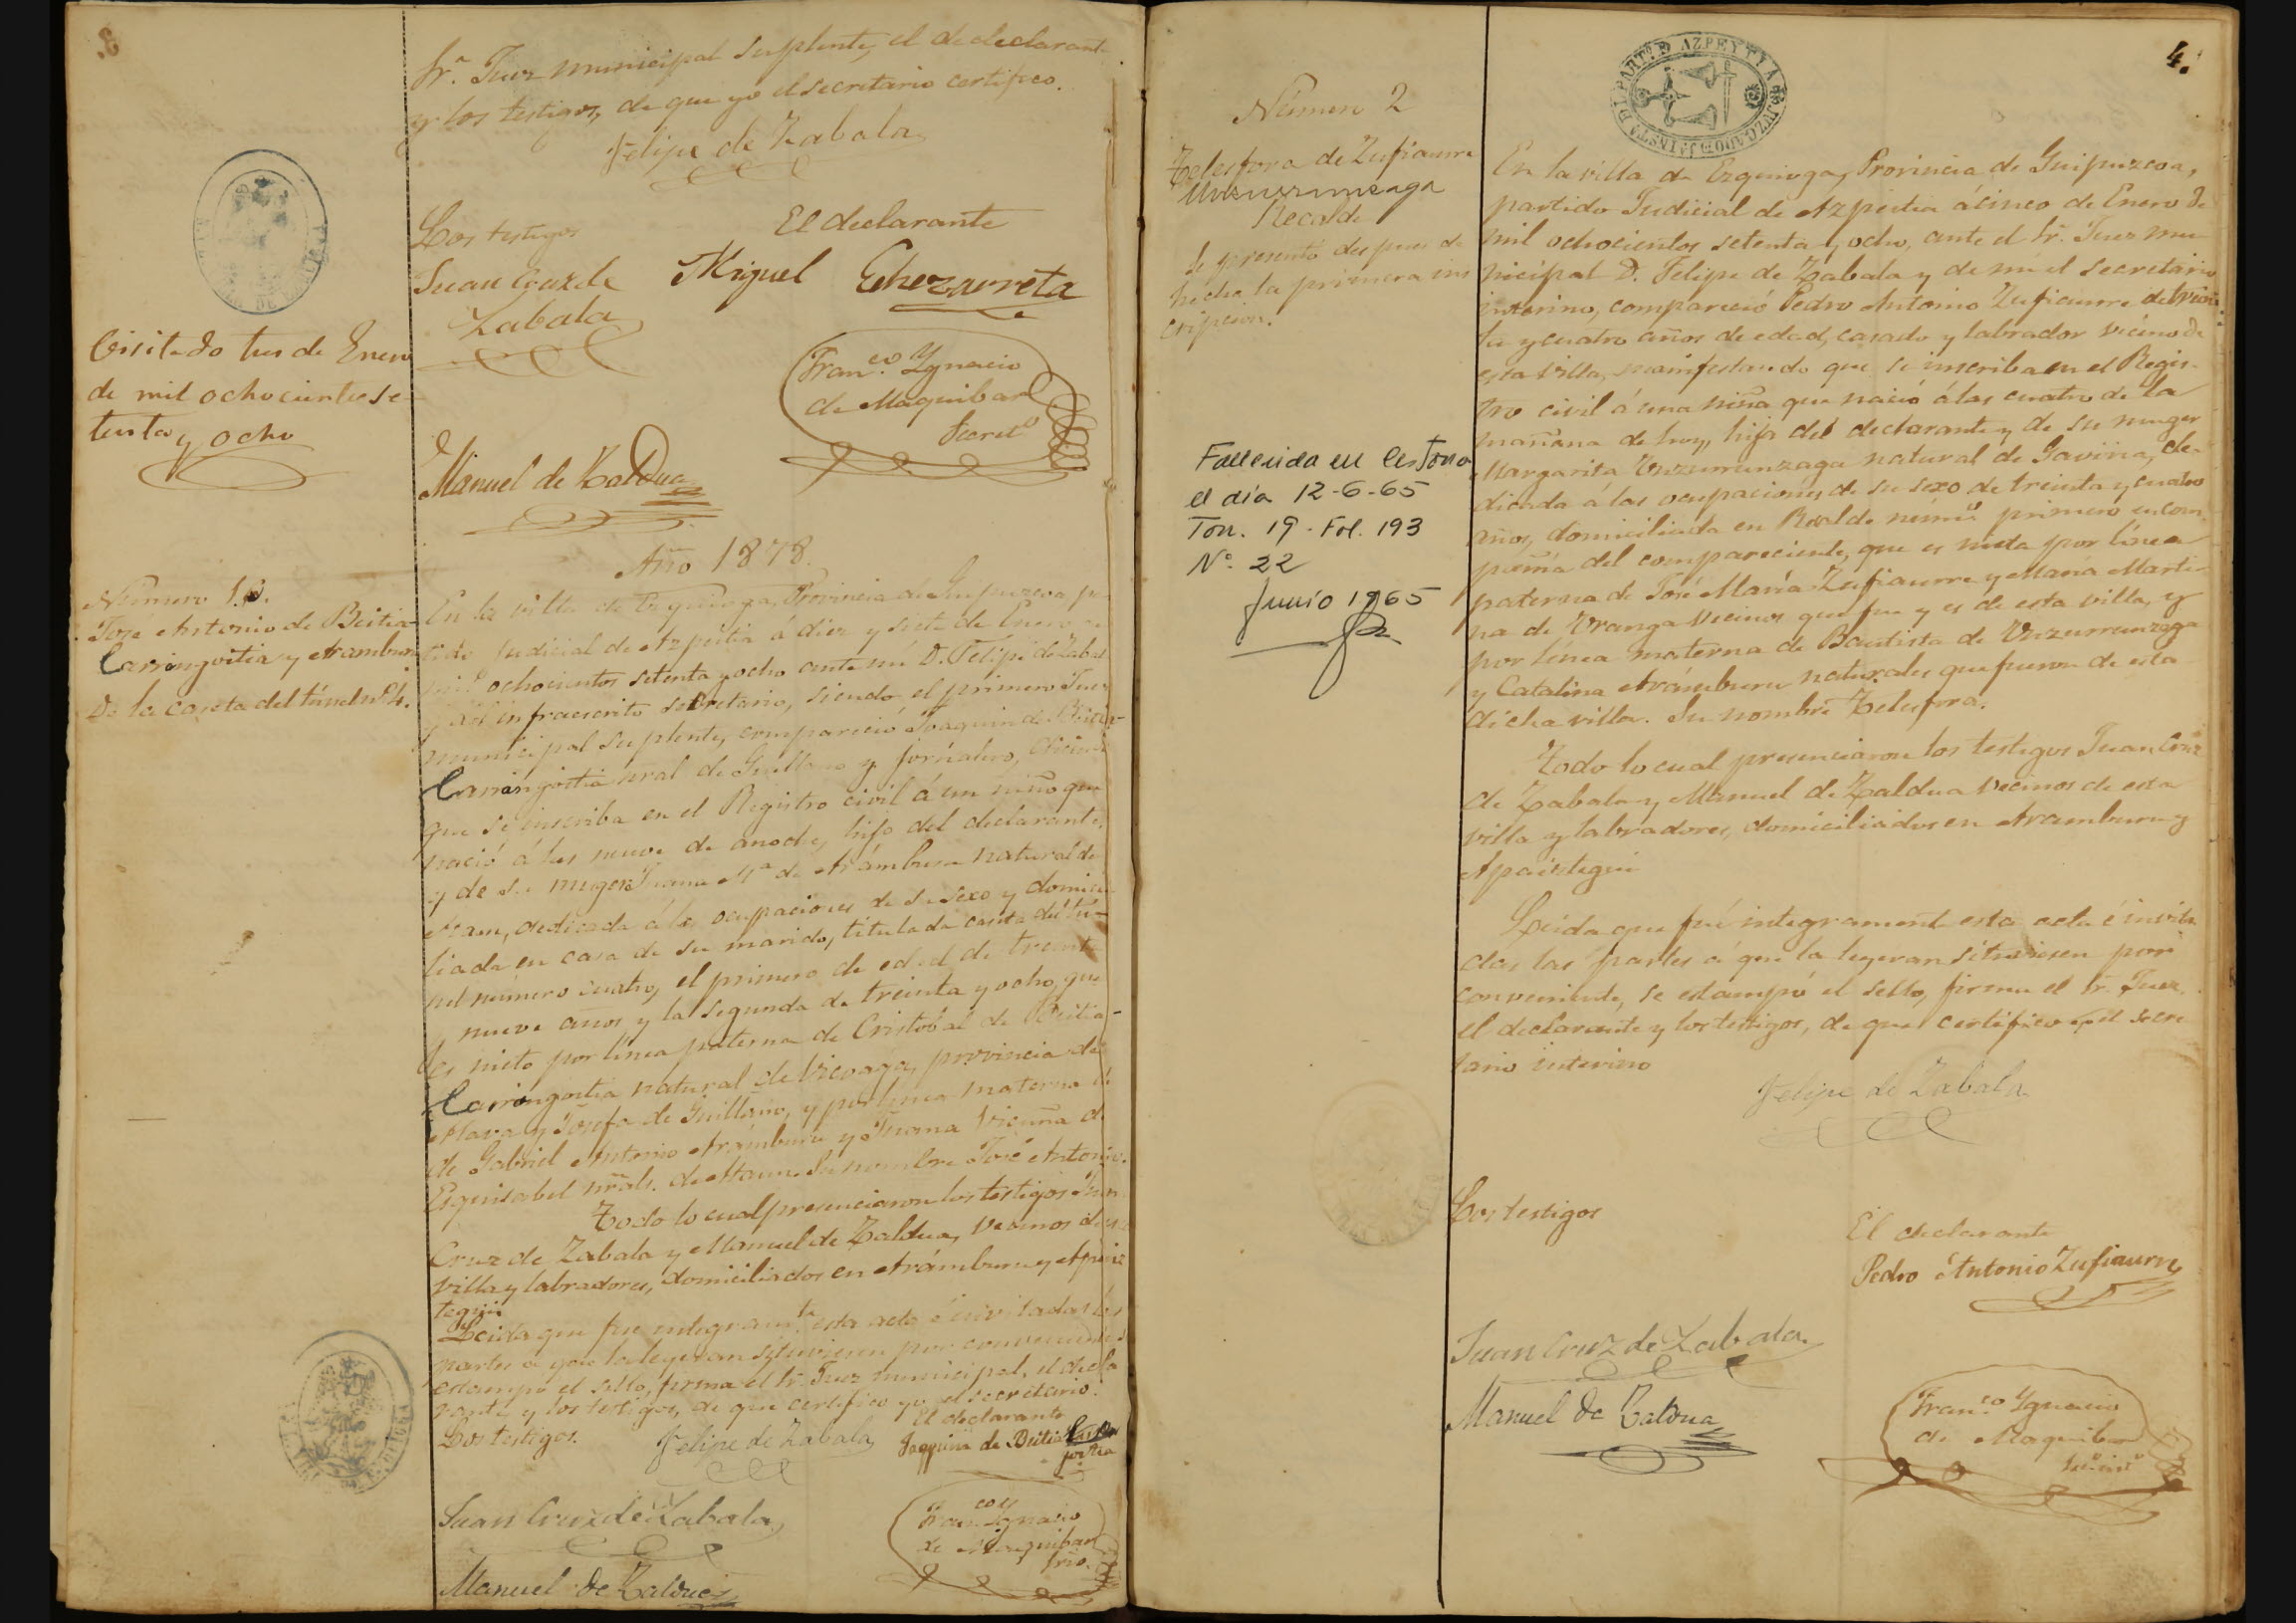 Sr. Juez municipal suplente, el declarante
y los testigos, de que yo el secretario certifico.
Felipe de Zabala
Los testigos
El declarante
Juan Cruz de
Zabala
Miguel Echezarreta
Visitado tres de Enero
de mil ochocientos se
tenta y ocho
Fran.co Ygnacio
de Maquibar
Secret.o
Manuel de Zaldua
Año 1878.
Número 1.o.
José Antonio de Beitia-
Larrangoitia y Aramburu
De la caseta del túnel nº 4.
En la villa de Ezquioga, Provincia de Guipuzcoa, par
tido Judicial de Azpeitia á diez y siete de Enero de
mil ochocientos setenta y ocho ante mi D. Felipe de Zabal
y del infraescrito secretario, siendo el primero Juez
municipal suplente, compareció Joaquin de Beitia-
Larrangoitia nral de Guillano y jornalero,
que se inscriba en el Registro civil á un niño que
nació á las nueve de anoche, hijo del declarante,
y de su muger Juana Mª de Arámburu natural de
Ataun, dedicada á las ocupaciones de su sexo y domici
liada en casa de su marido, titulada caseta del tú-
nel número cuatro, el primero de edad de treinta
y nueve años y la segunda de treinta y ocho, que
es nieto por línea paterna de Cristobal de Beitia-
Larrangoitia natural de provincia de
Alava y Josefa de Guillano, y por línea materna
de Gabriel Antonio Arámburu y Juana Vicuña de
Esquisabel nrals. de Ataun. Su nombre José Antonio.
Todo lo cual presenciaron los testigos Juan
Cruz de Zabala y Manuel de Zaldua, vecinos de
villa y labradores, domiciliados en Arámburu y Apaiz
tegui
Leida que fue integramte esta acta é invitadas las
partes á que la leyeran si tuviesen por conveniente,
estampó el sello, firma el Sr. Juez municipal, el decla
rante y los testigos, de que certifico yo el secretario.
Los testigos.
Felipe de Zabala
El declarante
Joaquin de Beitia Larran
goitia
Juan Cruz de Zabala
Fran.co Ygnacio
de Maquibar
Srio.
Manuel de Zaldua
4.
PART.O D AZPEYTYA
JUZGADO D 1ª INST.A D
Número 2
Telesfora de Zufiaurre
Unzurrunzaga
Recalde
Se presentó despues de
hecha la primera ins
cripcion.
Fallecida en Cestona
el día 12-6-65
Tom. 19 - Fol. 193
Nº 22
Junio 1965
En la villa de Ezquioga, Provincia de Guipuzcoa,
partido Judicial de Azpeitia á cinco de Enero de
mil ochocientos setenta y ocho, ante el Sr. Juez mu
nicipal D. Felipe de Zabala y de mi el secretario
interino, compareció Pedro Antonio Zufiaurre de trein
ta y cuatro años de edad, casado y labrador vecino de
esta villa, manifestando que se inscriba en el Regis-
tro civil á una niña que nació á las cuatro de la
mañana de hoy, hija del declarante y de su muger
Margarita Unzurrunzaga natural de Gaviria, de-
dicada á las ocupaciones de su sexo de treinta y cuatro
años, domiciliada en Recalde númº primero en com
pañía del compareciente, que es nieta por línea
paterna de José María Zufiaurre y Maria Marti-
na de Uranga vecinos que fue y es de esta villa, y
por línea materna de Bautista de Unzurrunzaga
y Catalina Arámburu naturales que fueron de esta
dicha villa. Su nombre Telesfora.
Todo lo cual presenciaron los testigos Juan Cruz
de Zabala y Manuel de Zaldua vecinos de esta
villa y labradores, domiciliados en Aramburu y
Apaiztegui
Leida que fué integramente esta acta é invita
das las partes á que la leyeran si tuviesen por
conveniente, se estampó el sello, firma el Sr. Juez,
el declarante y los testigos, de que certifico yo el secre
tario interino
Felipe de Zabala
Los testigos
El declarante
Pedro Antonio Zufiaurre
Juan Cruz de Zabala
Manuel de Zaldua
Fran.co Ygnacio
de Maquibar